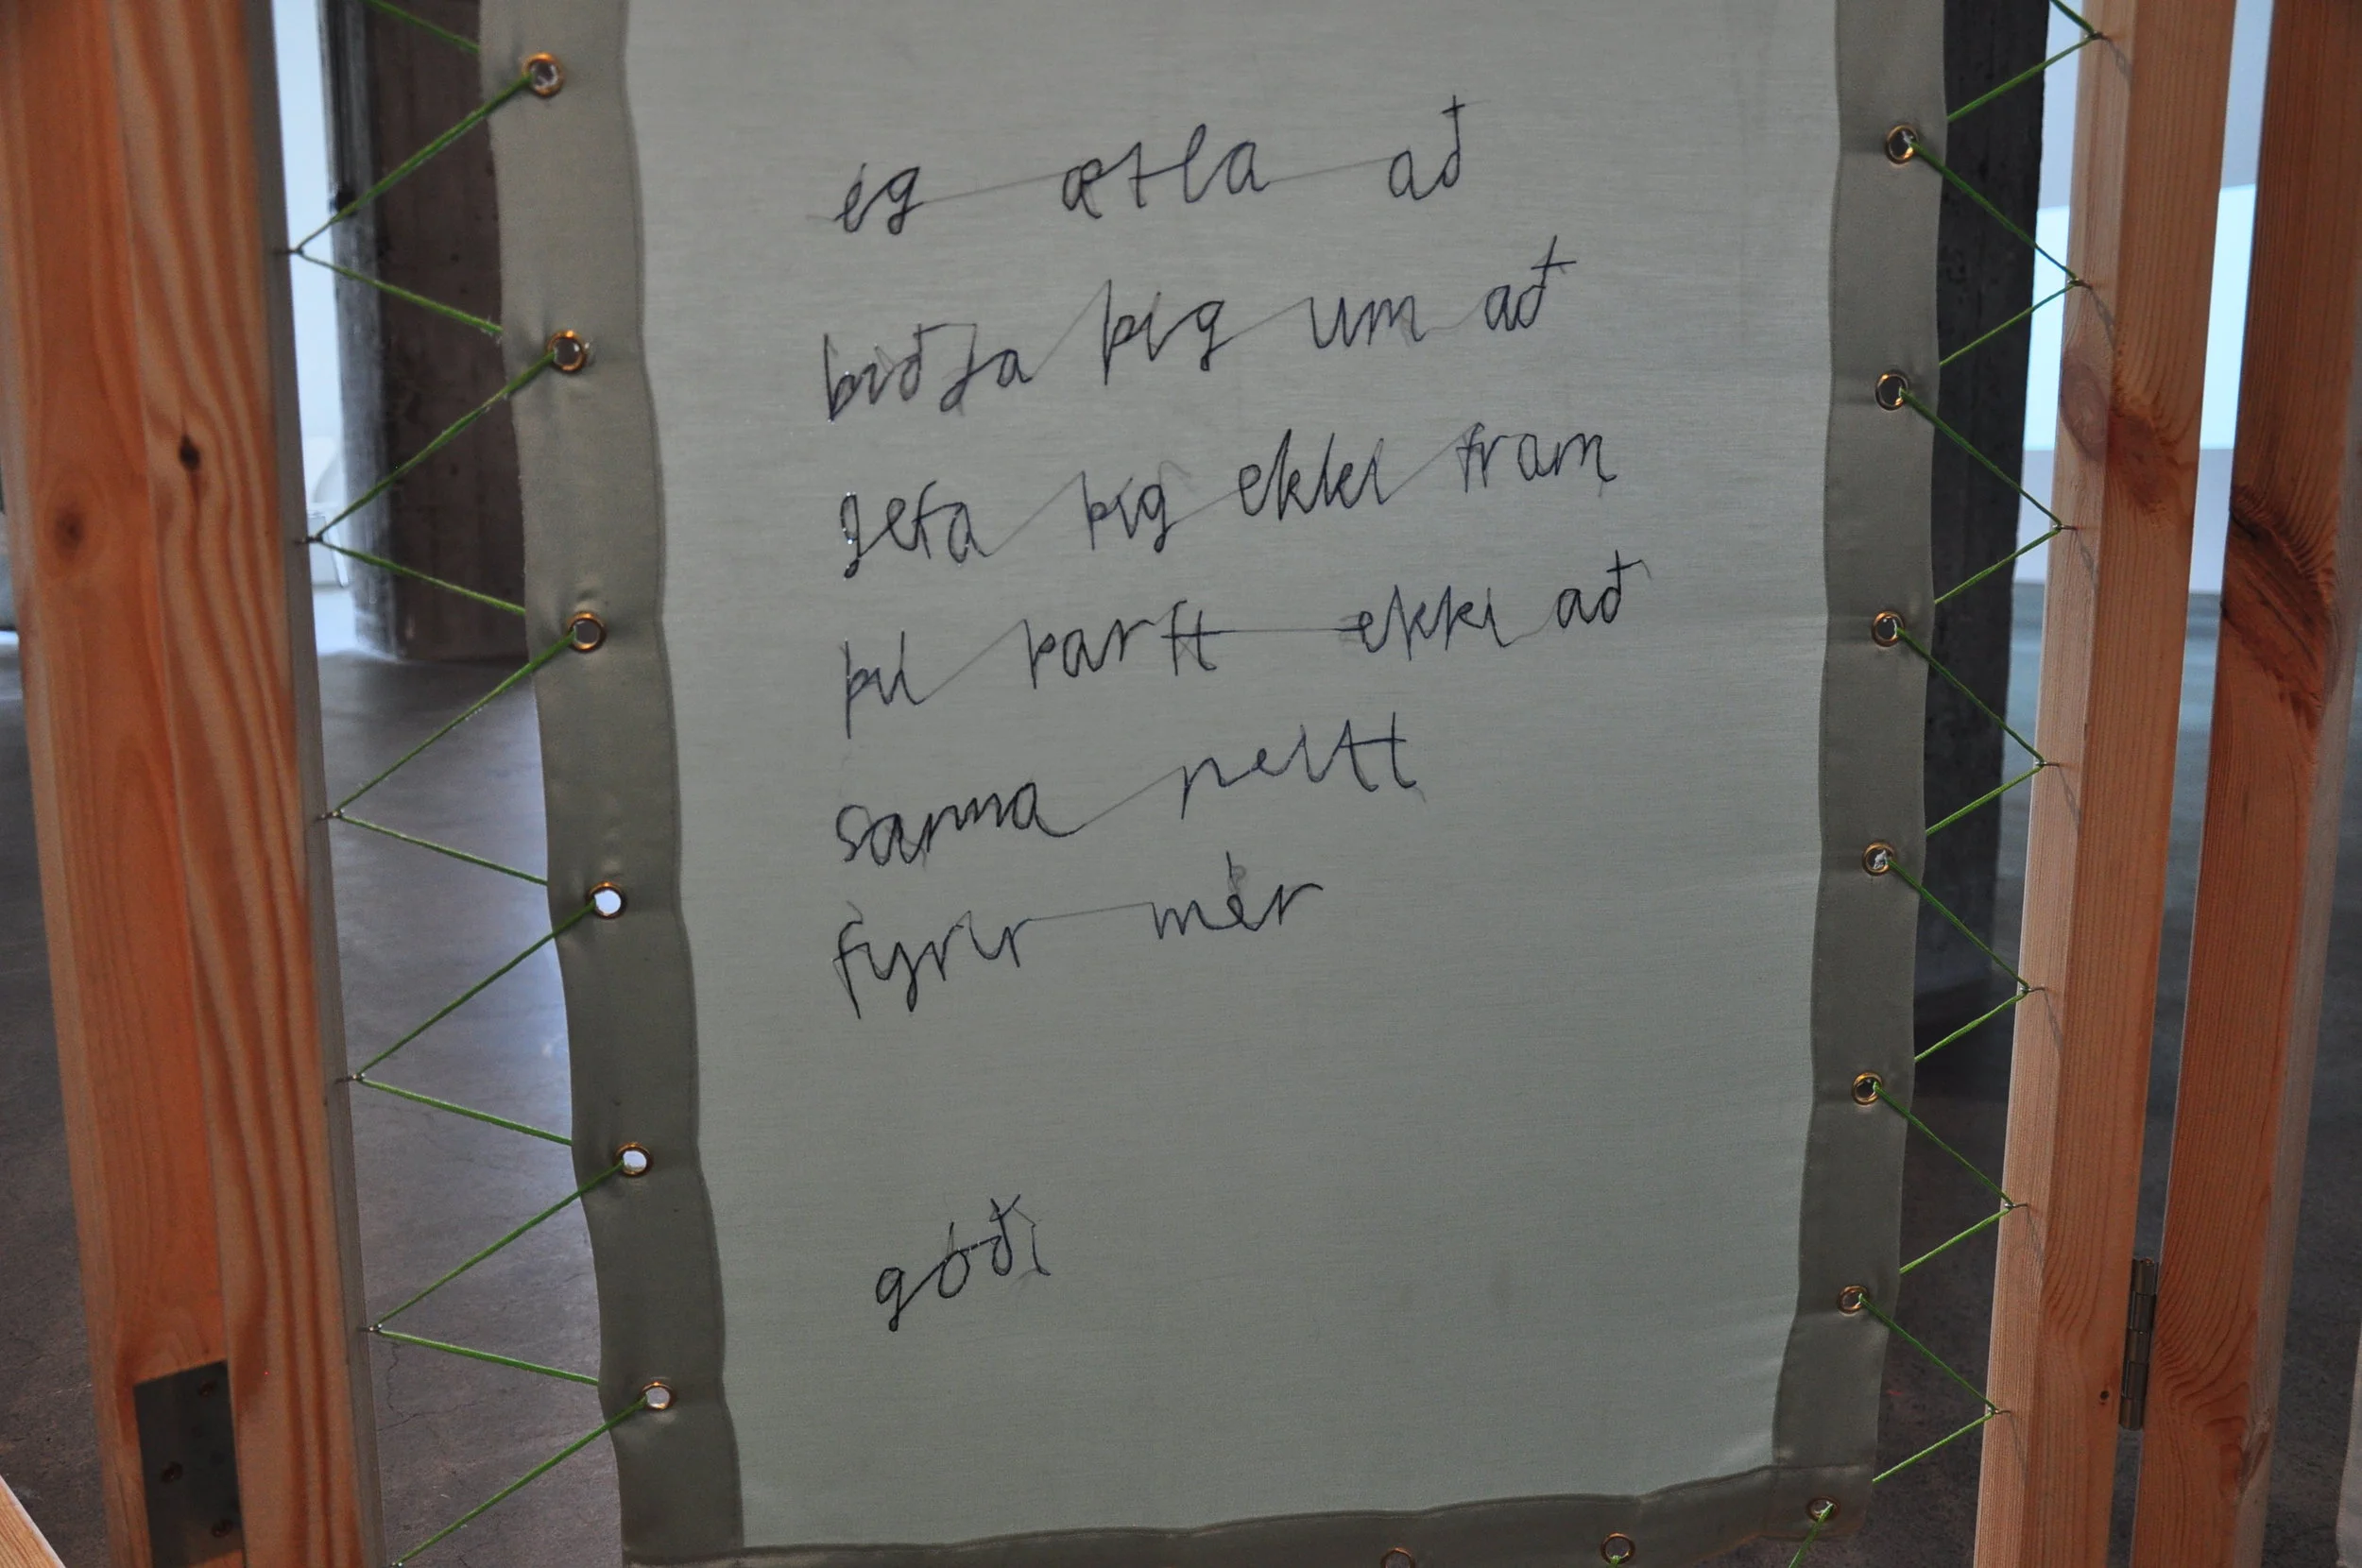 ég ætla að
biðja þig um að
gefa þig ekki fram
þú þarft ekki að
sanna neitt
fyrir mér
góði